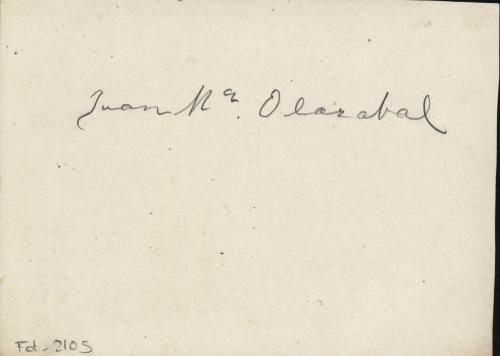 Juan Mª Olazabal
Fd-2105